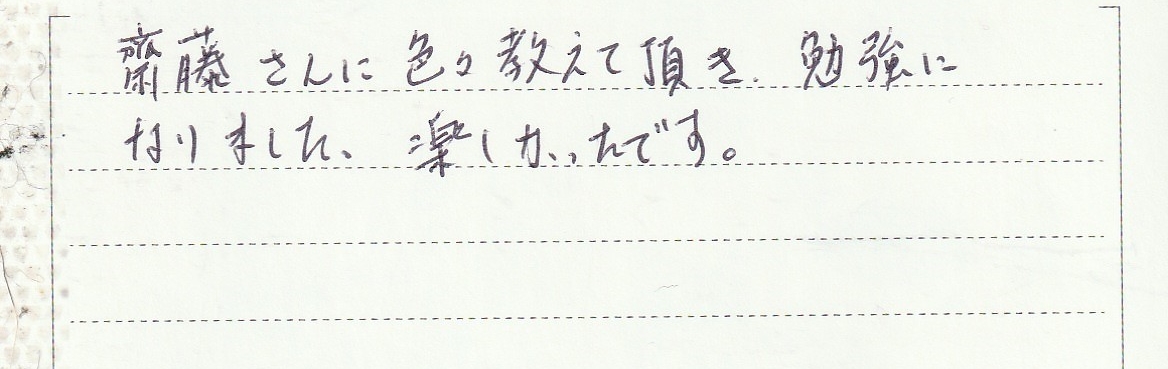 齋藤さんに色々教えて頂き、勉強に
なりました、楽しかったです。